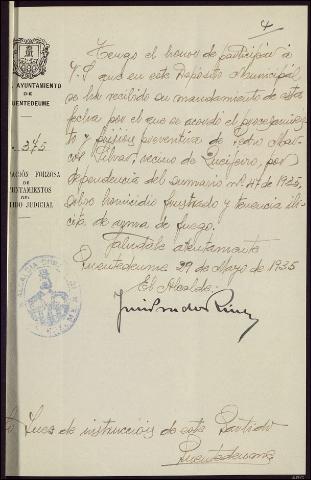 4
AYUNTAMIENTO
DE
PUENTEDEUME
375
AGRUPACIÓN FORZOSA
DE
AYUNTAMIENTOS
DEL
PARTIDO JUDICIAL
Tengo el honor de participar a
V.S que en este Deposito Municipal
se ha recibido su mandamiento de esta
fecha por el que se acordó el procesamien
to y prisión preventiva de Pedro
vecino de por
dependencia del sumario nº 47 de 1935,
sobre homicidio frustrado y tenencia ilí-
cita de arma de fuego.
Salúdale atentamente
Puentedeume 29 de Mayo de 1935
El Alcalde:
Juez de instrucción de este Partido
Puentedeume